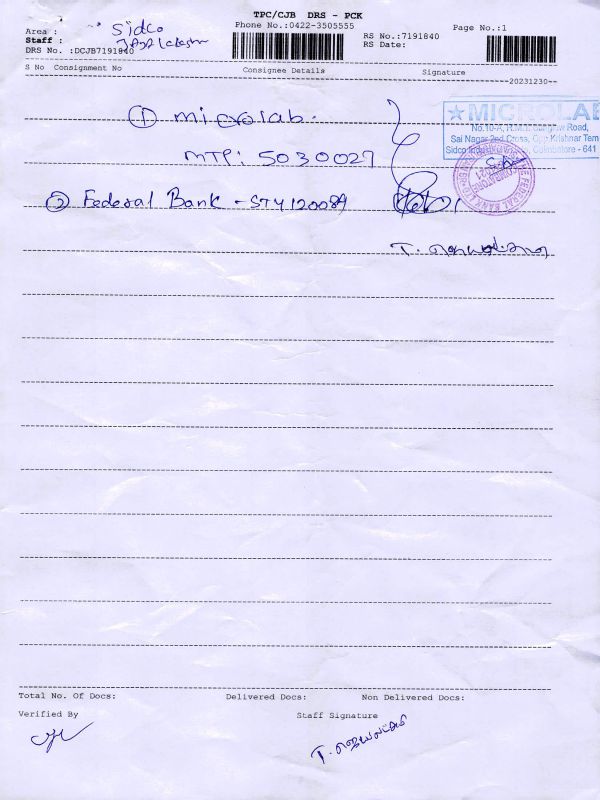 TPC/CJB DRS - PCK
Phone No.:0422-3505555
Page No.:1
Area : Sidco
Staff :
DRS No. :DCJB7191840
RS No.:7191840
RS Date:
S No Consignment No Consignee Details Signature
20231230
① microlab.
MTP: 5030027
MICROLAB
Sai Nagar 2nd Cross, Opp Krishnar Tem
② Federal Bank - STY120089
Total No. Of Docs: Delivered Docs: Non Delivered Docs:
Verified By Staff Signature